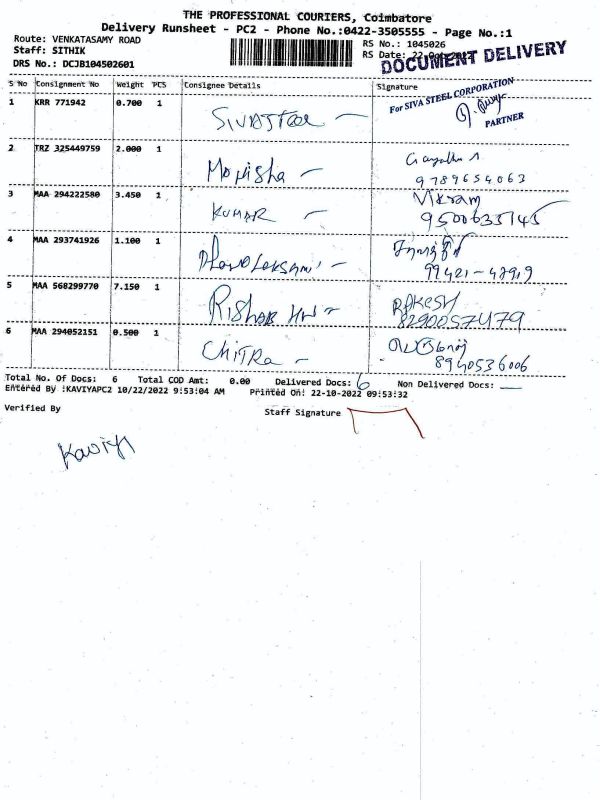 THE PROFESSIONAL COURIERS, Coimbatore
Delivery Runsheet - PC2 - Phone No.:0422-3505555 - Page No.:1
Route: VENKATASAMY ROAD
Staff: SITHIK
DRS No: DCJB104502601
RS No: 1045026
RS Date: 22-Oct-2022
DOCUMENT DELIVERY
S No Consignment No Weight PCS Consignee Details Signature
1 KRR 771942 0.700 1
For SIVA STEEL CORPORATION
PARTNER
2 TRZ 325449759 2.000 1 Monisha
9789654063
3 MAA 294222580 3.450 1 KUMAR Vikram
9500633745
4 MAA 293741926 1.100 1
99421-47919
5 MAA 568299770 7.150 1 RAKESH
8290057479
6 MAA 294052151 0.500 1 CHITRA
8940536006
Total No. Of Docs: 6 Total COD Amt: 0.00 Delivered Docs: 6 Non Delivered Docs:
Entered By :KAVIYAPC2 10/22/2022 9:53:04 AM Printed On: 22-10-2022 09:53:32
Verified By Staff Signature
Kaviya